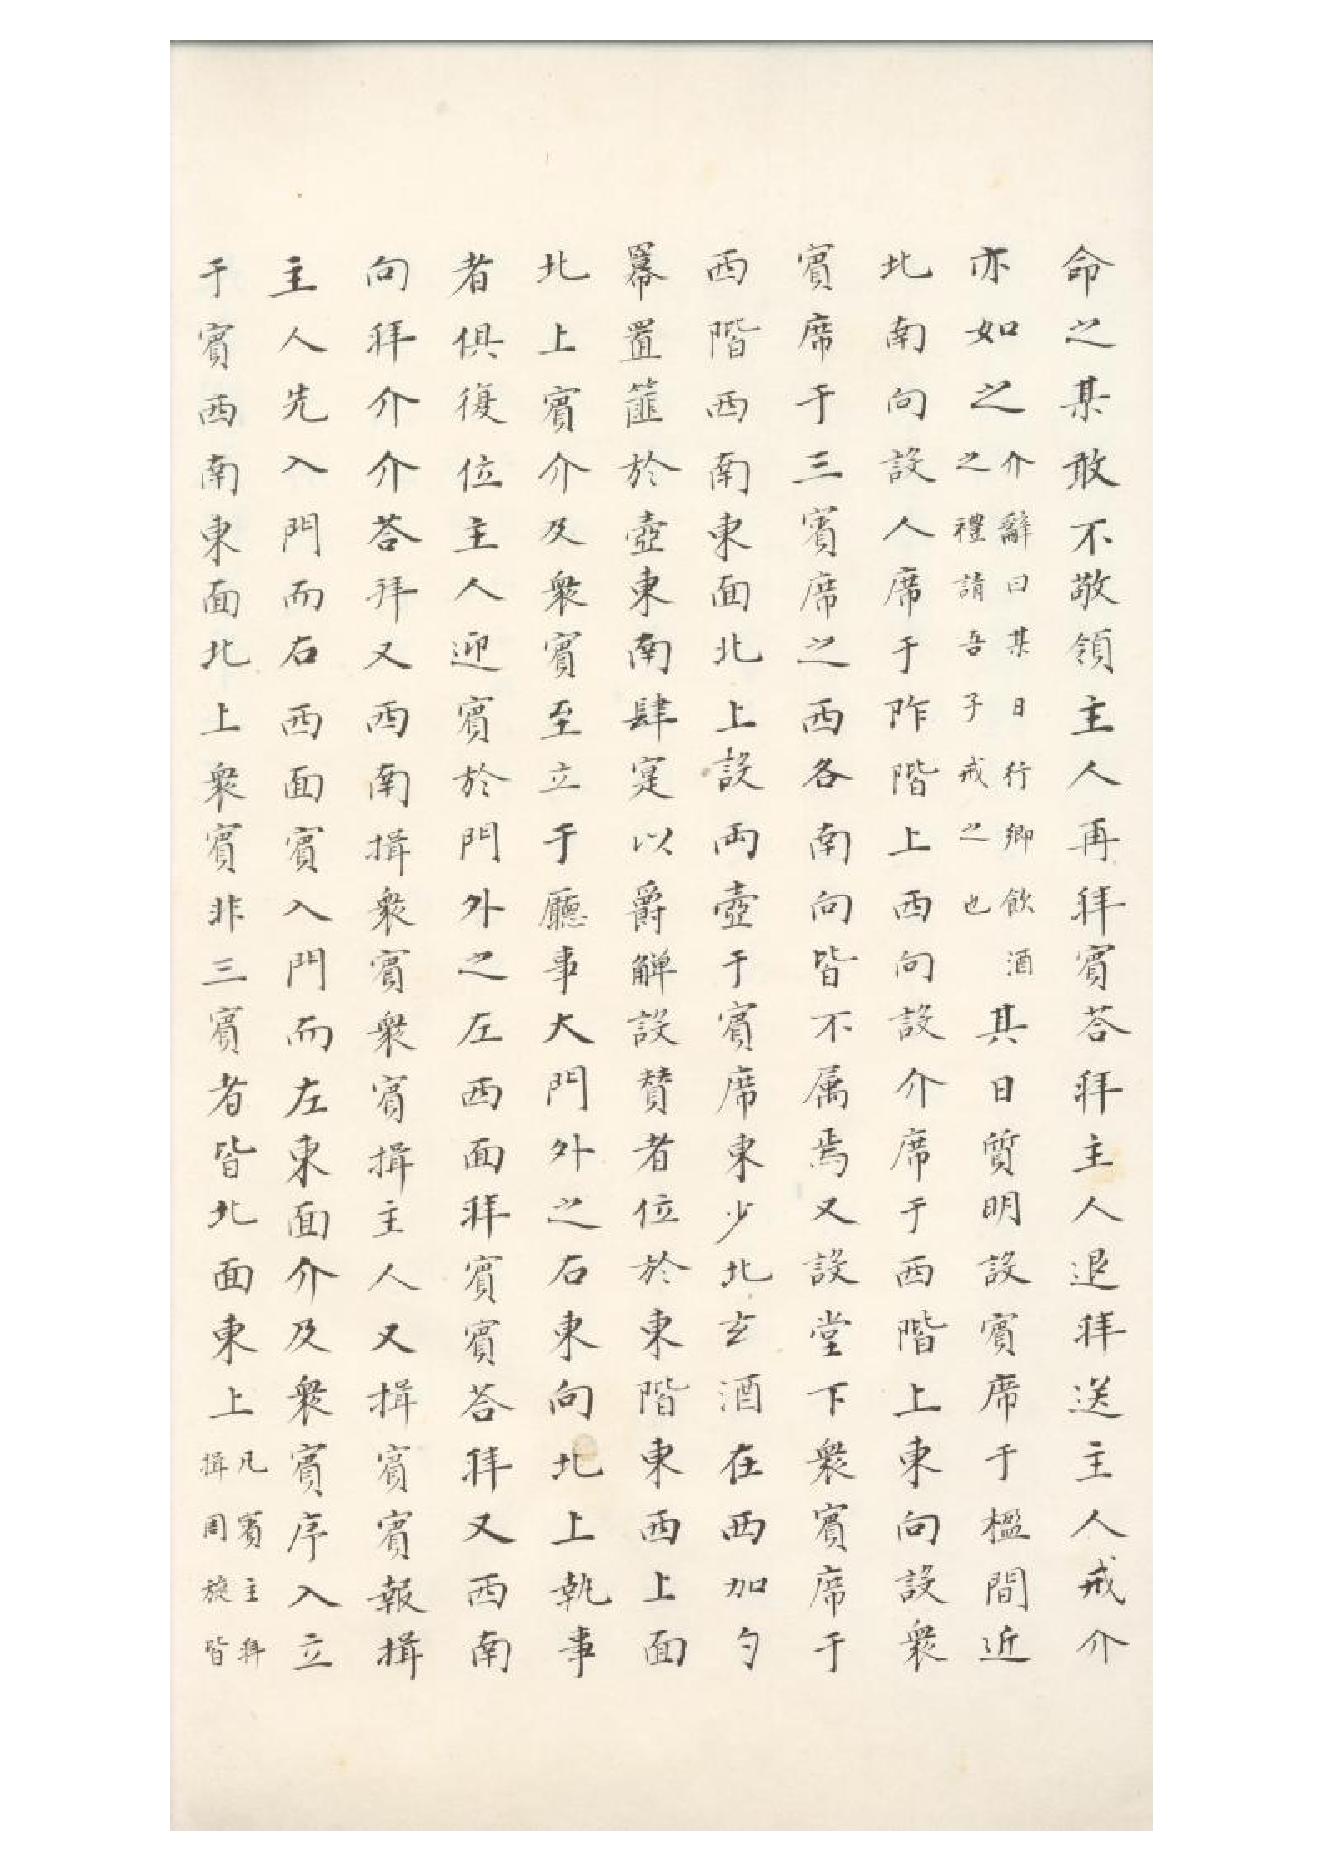 命之某敢不敬領主人再拜賓荅拜主人退拜送主人戒介
亦如之介辭曰某日行鄉飲酒之禮請吾子戒之也其日質明設賓席于楹間近
北南向設人席于阼階上西向設介席于西階上東向設衆
賓席于三賓席之西各南向皆不属焉又設堂下衆賓席于
西階西南東面北上設兩壺于賓席東少北玄酒在西加勺
冪置篚於壺東南肆寔以爵觶設贊者位於東階東西上面
北上賓介及衆賓至立于廳事大門外之右東向北上執事
者俱復位主人迎賓於門外之左西面拜賓賓荅拜又西南
向拜介介荅拜又西南揖衆賓衆賓揖主人又揖賓賓報揖
主人先入門而右西面賓入門而左東面介及衆賓序入立
于賓西南東面北上衆賓非三賓者皆北面東上凡賓主拜揖周旋皆